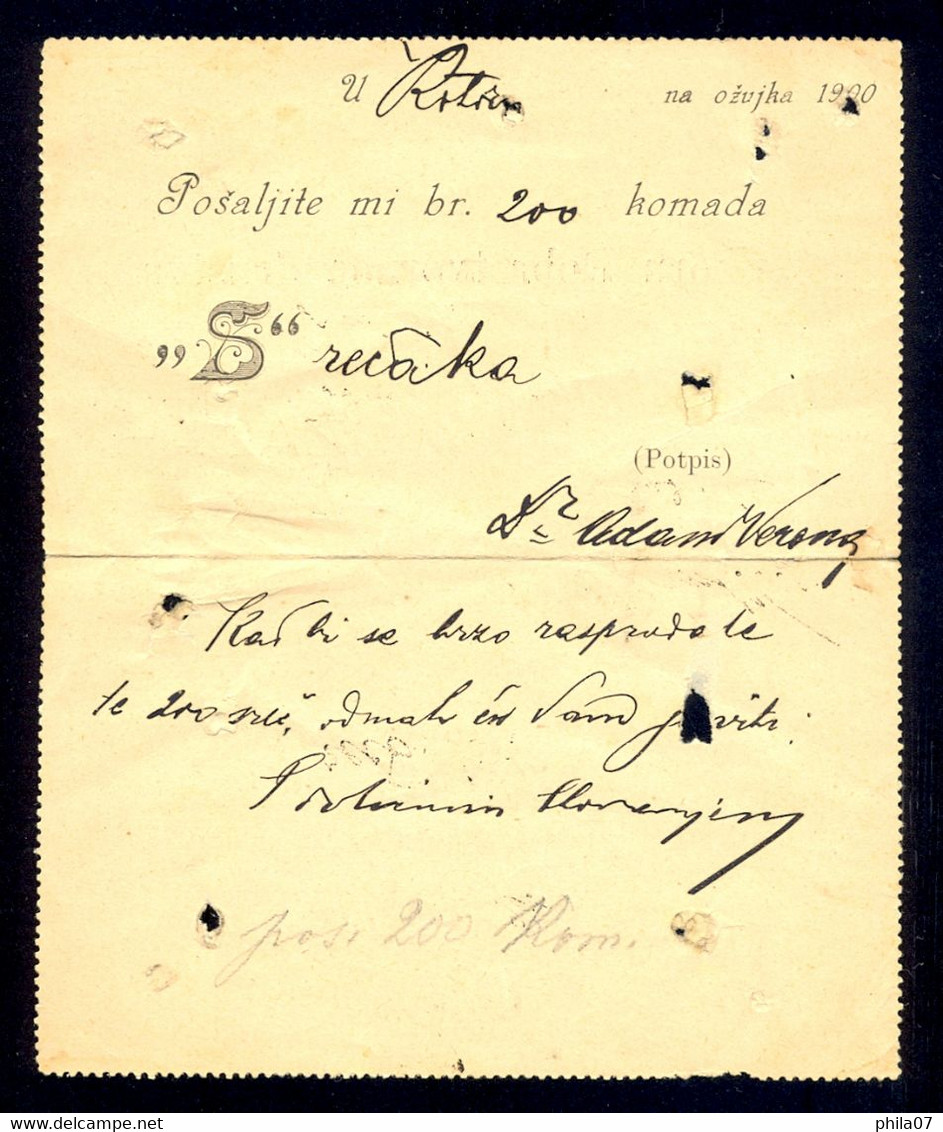 U Kotoru na ožujka 1900
Pošaljite mi br. 200 komada
„S“ rećaka
(Potpis)
Dr. Adam Verona
Kad bi se brzo rasprodale
te 200 sreć. odmah ću Vam javiti.
S štovanjem
pos. 200 Kom.
phila07